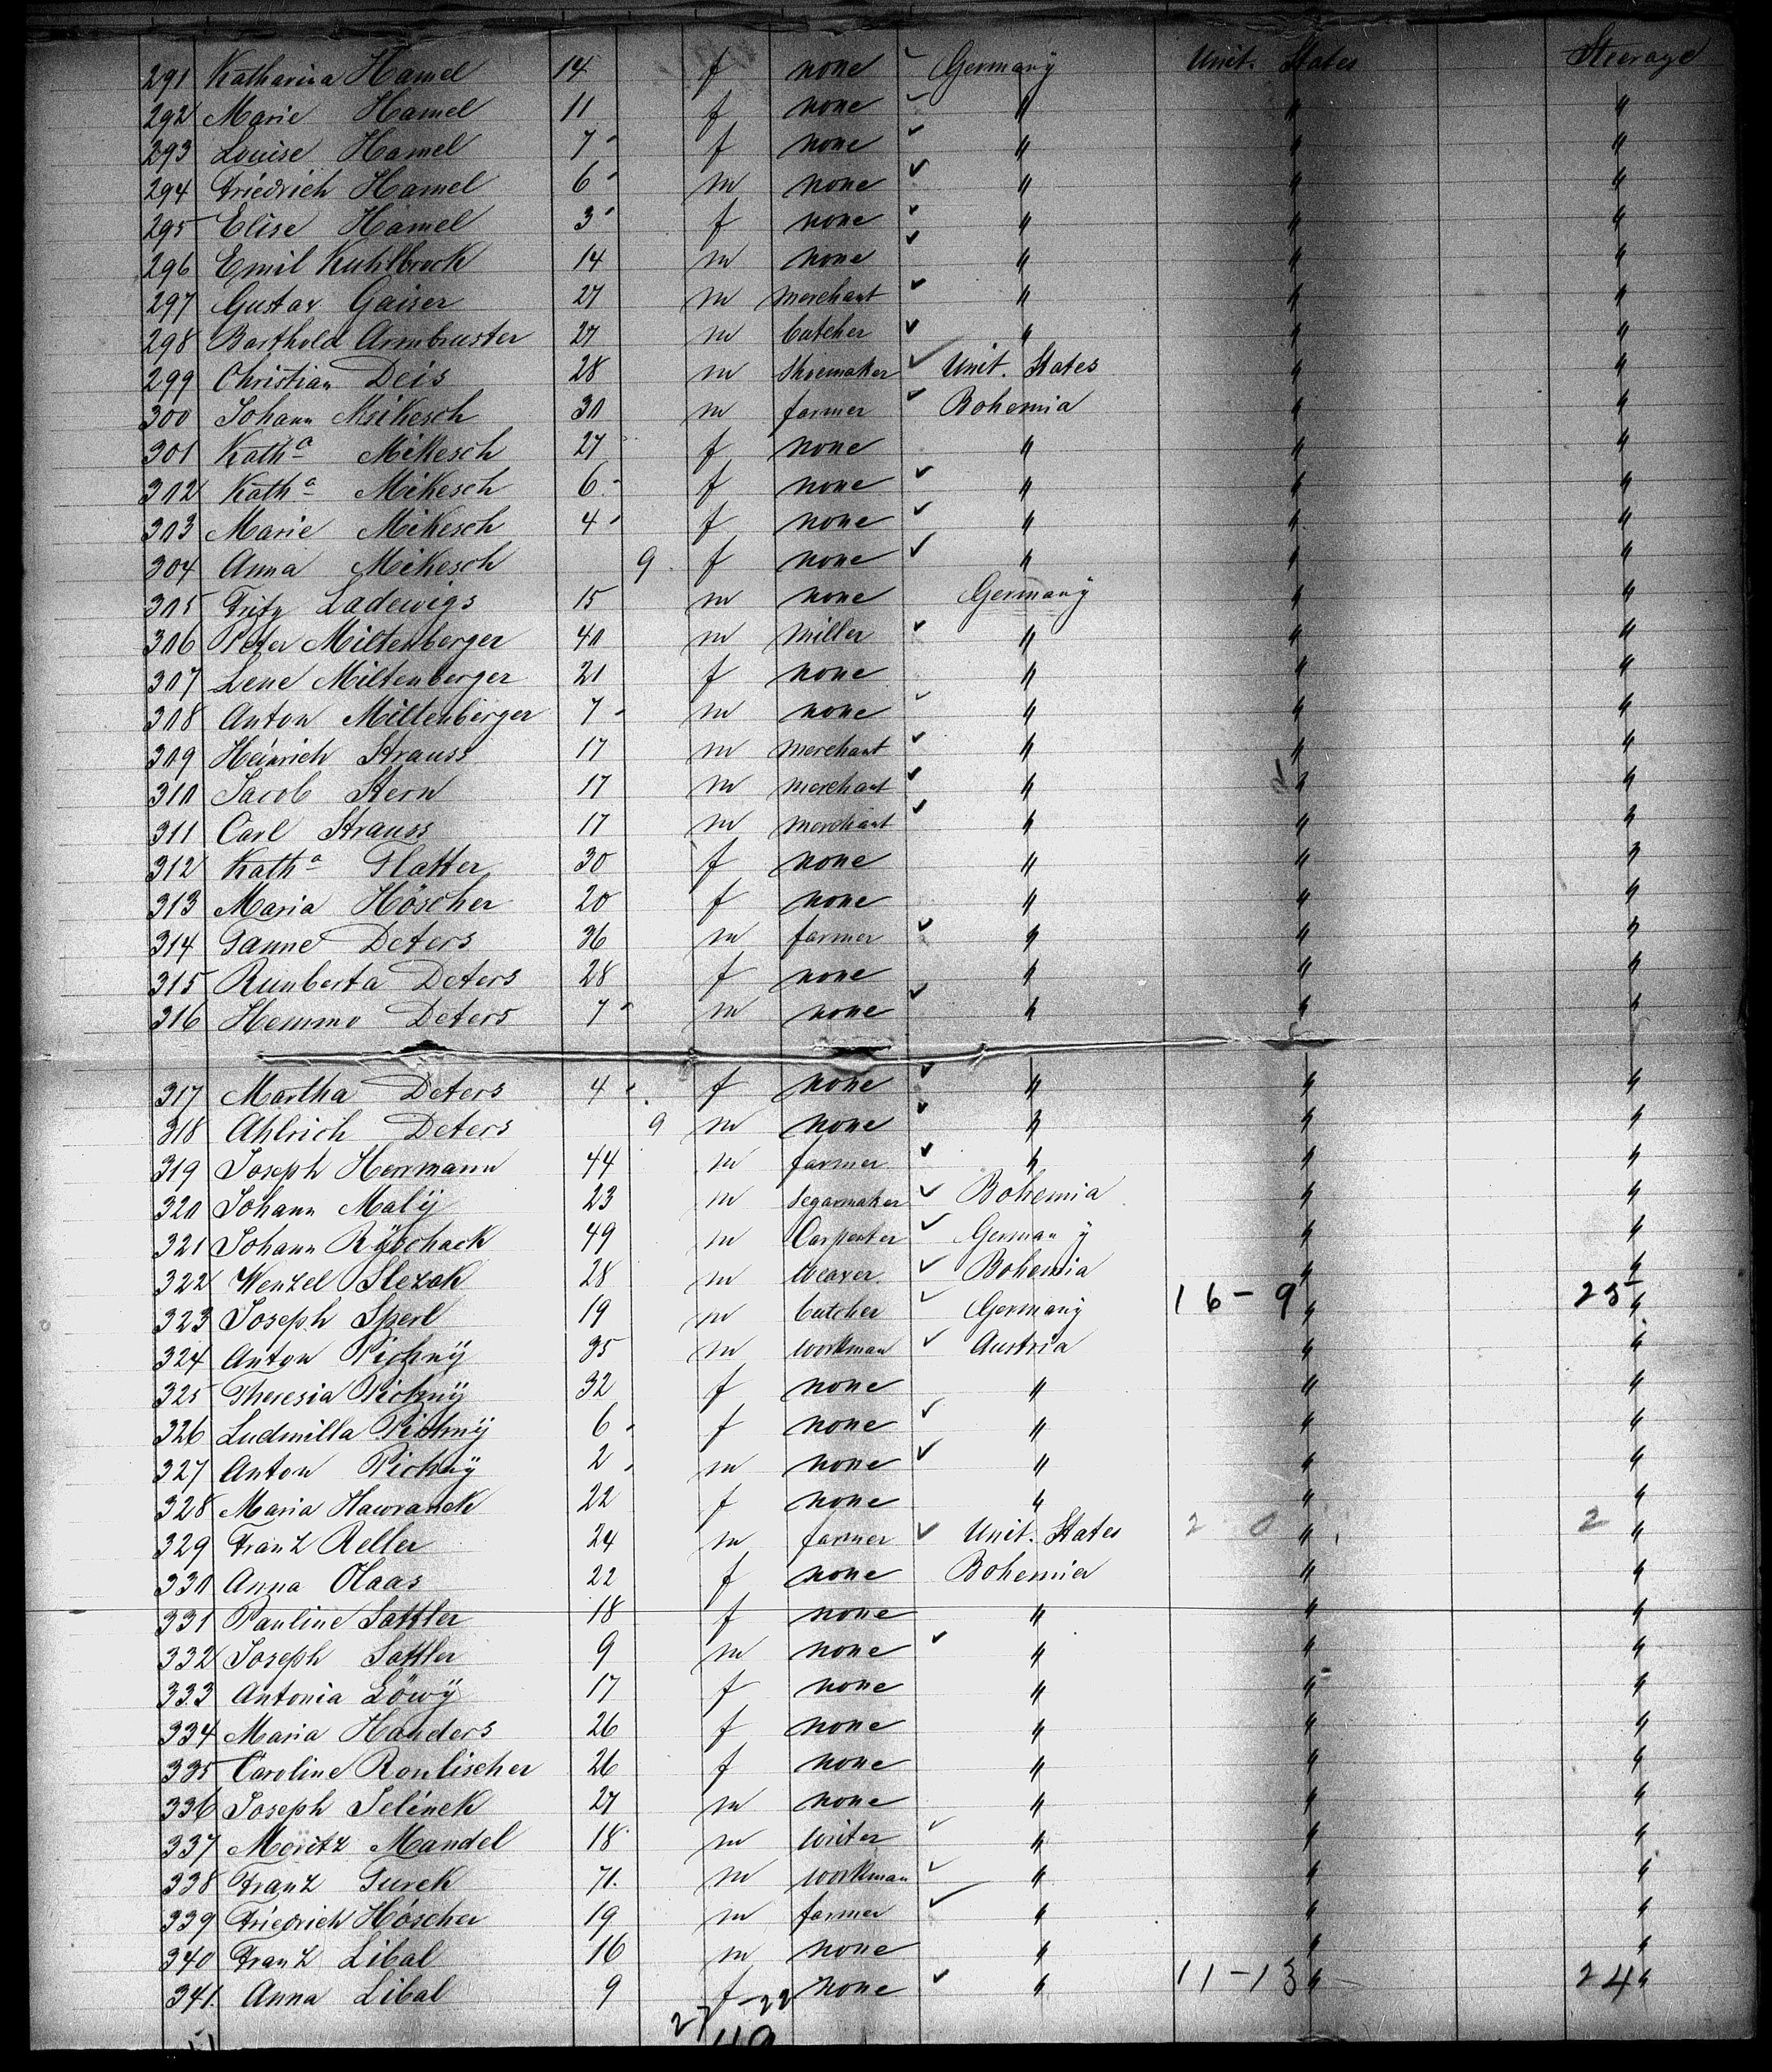 291 Katharina Hamel 14 f none Germany Unit. States Steerage
292 Marie Hamel 11 f none " " "
293 Louise Hamel 7 f none " " "
294 Friedrich Hamel 6 m none " " "
295 Elise Hamel 3 f none " " "
296 Emil Kuhlbrock 14 m none " " "
297 Gustav Gaiser 27 m merchant " " "
298 Barthold Armbruster 27 m butcher " " "
299 Christian Deis 28 m Shoemaker Unit. States " "
300 Johann Mikesch 30 m farmer Bohemia " "
301 Kath.a Mikesch 27 f none " " "
302 Kath.a Mikesch 6 f none " " "
303 Marie Mikesch 4 f none " " "
304 Anna Mikesch 9 f none " " "
305 Fritz Ladewigs 15 m none Germany " "
306 Peter Miltenberger 40 m miller " " "
307 Lene Miltenberger 21 f none " " "
308 Anton Miltenberger 7 m none " " "
309 Heinrich Strauss 17 m merchant " " "
310 Jacob Stern 17 m merchant " " "
311 Carl Strauss 17 m merchant " " "
312 Kath.a Glatter 30 f none " " "
313 Maria Höscher 20 f none " " "
314 Janne Deters 36 m farmer " " "
315 Rumberta Deters 28 f none " " "
316 Hemmo Deters 7 m none " " "
317 Martha Deters 4 f none " " "
318 Ahlrich Deters 9 m none " " "
319 Joseph Herrmann 44 m farmer " " "
320 Johann Malÿ 23 m Segarmaker Bohemia " "
321 Johann Rÿschack 49 m Carpenter Germany " "
322 Wenzel Slezak 28 m weaver Bohemia " "
323 Joseph Sperl 19 m butcher Germany 16-9 " 25 "
324 Anton Pichnÿ 35 m workman Austria " "
325 Theresia Pichnÿ 32 f none " " "
326 Ludmilla Pichnÿ 6 f none " " "
327 Anton Pichnÿ 2 m none " " "
328 Maria Hawranek 22 f none " " "
329 Franz Reller 24 m farmer Unit. States 2 0 " 2 "
330 Anna Haas 22 f none Bohemia " "
331 Pauline Sattler 18 f none " " "
332 Joseph Sattler 9 m none " " "
333 Antonia Löwÿ 17 f none " " "
334 Maria Handers 26 f none " " "
335 Caroline Ronlischer 26 f none " " "
336 Joseph Selinek 27 m none " " "
337 Moritz Mandel 18 m writer " " "
338 Franz Turek 71. m workman " " "
339 Friedrich Höscher 19 m farmer " " "
340 Franz Libal 16 m none " " "
341. Anna Libal 9 f none " 11-13 " 24 "
27-22
49